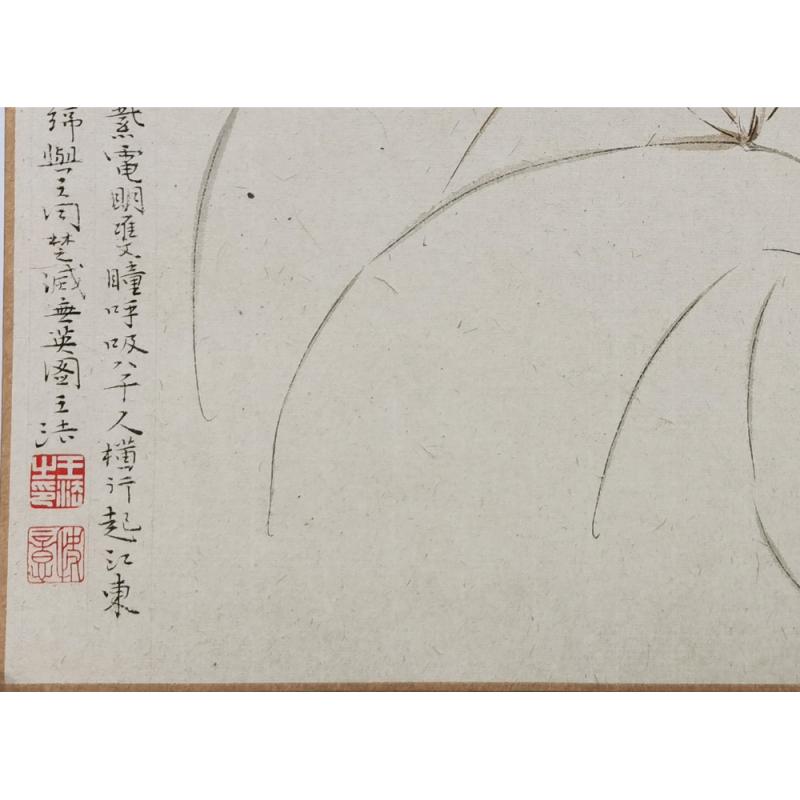 紫電明雙瞳呼吸八千人橫行起江東
緯與天同楚滅無英圖王浩